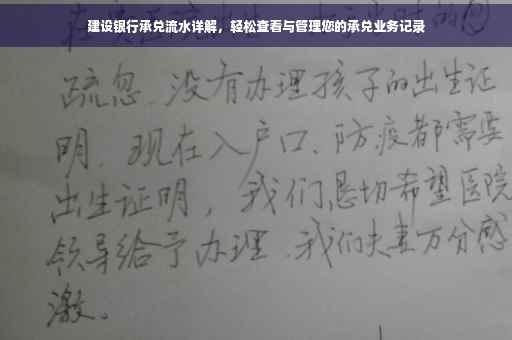 建设银行承兑流水详解，轻松查看与管理您的承兑业务记录
疏忽、没有办理孩子的出生证
明、现在入户口、防疫都需要
出生证明，我们恳切希望医院
领导给予办理、我们夫妻万分感
激。